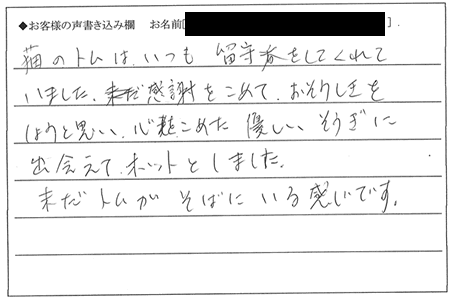 ◆お客様の声書き込み欄　お名前[　].
猫のトムは、いつも 留守番をしてくれて
いました、感謝をこめて、おそうしきを
しようと思い、心こめた 優しい そうぎに
出会えて、ホットとしました。
未だトムが そばに いる感じです。